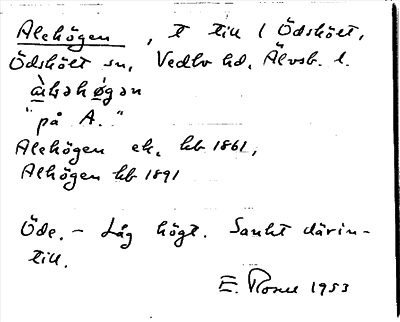 Alehögen, t till 1 Ödskölt,
Ödskölt sn, Vedbo hd, Älvsb. l.
"på A."
Alehögen ek. kb 1861,
Alhögen kb 1891
Öde. – Låg högt. Sankt därin-
till.
E. Rosell 1953